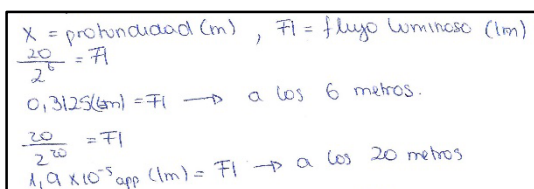 X = profundidad (m) , Fl = flujo luminoso (lm)
20/2^6 = Fl
0,3125(lm) = Fl → a los 6 metros.
20/2^20 = Fl
1,9 x10^-5 app (lm) = Fl → a los 20 metros